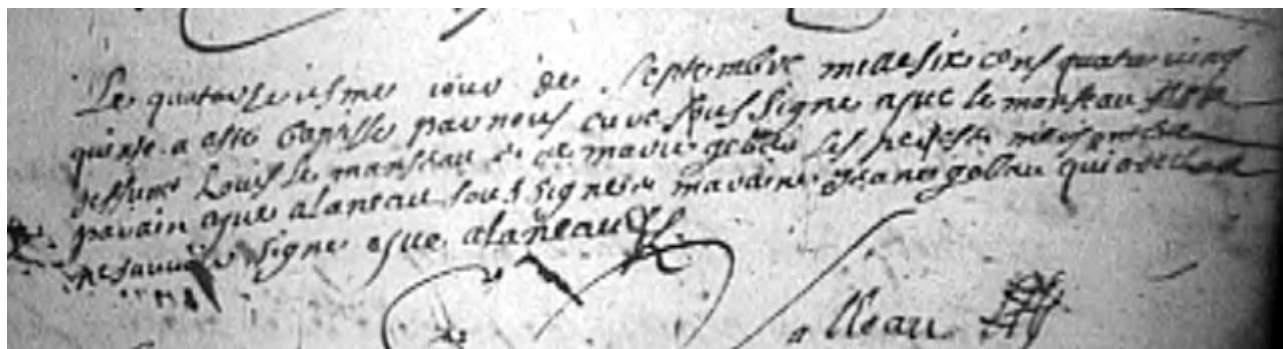 Le quatorseiesme iour de septembre mille six cens quatre ving
quinse a aste baptisse par nous cure soussigne ysue le monseau fils de
deffunt Louis le monseau & de marie gobeu ses pere & mere
parain ysue alaneau soussigne & maraine jeane gobeu qui a declare
ne savoir signe ysue alaneau
a lleau